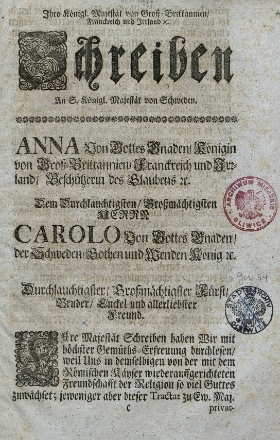 Ihro Königl. Majestät von Groß-Brittannien/
Franckreich und Irrland ꝛc.
Schreiben
An S. Königl. Majestät von Schweden.
ANNA Von Gottes Gnaden/ Königin
von Groß-Brittannien/ Franckreich und Irr-
land/ Beschützerin des Glaubens ꝛc.
Dem Durchlauchtigsten/ Großmächtigsten
HERRN
CAROLO Von Gottes Gnaden/
der Schweden/ Gothen und Wenden König ꝛc.
Durchlauchtigster/ Großmächtigster Fürst/
Bruder/ Enckel und allerliebster
Freund.
Ihre Majestät Schreiben haben Wir mit
höchster Gemüths-Erfreuung durchlesen/
weil Uns in demselbigen von der mit dem
Römischen Käyser wiederauffgerichteten
Freundschafft der Religion so viel Gutes
zuwächset; jeweniger aber dieser Tractat zu Ew. Maj.
c privat-
ARCHIWUM MIEJSKIE
GLIWICE